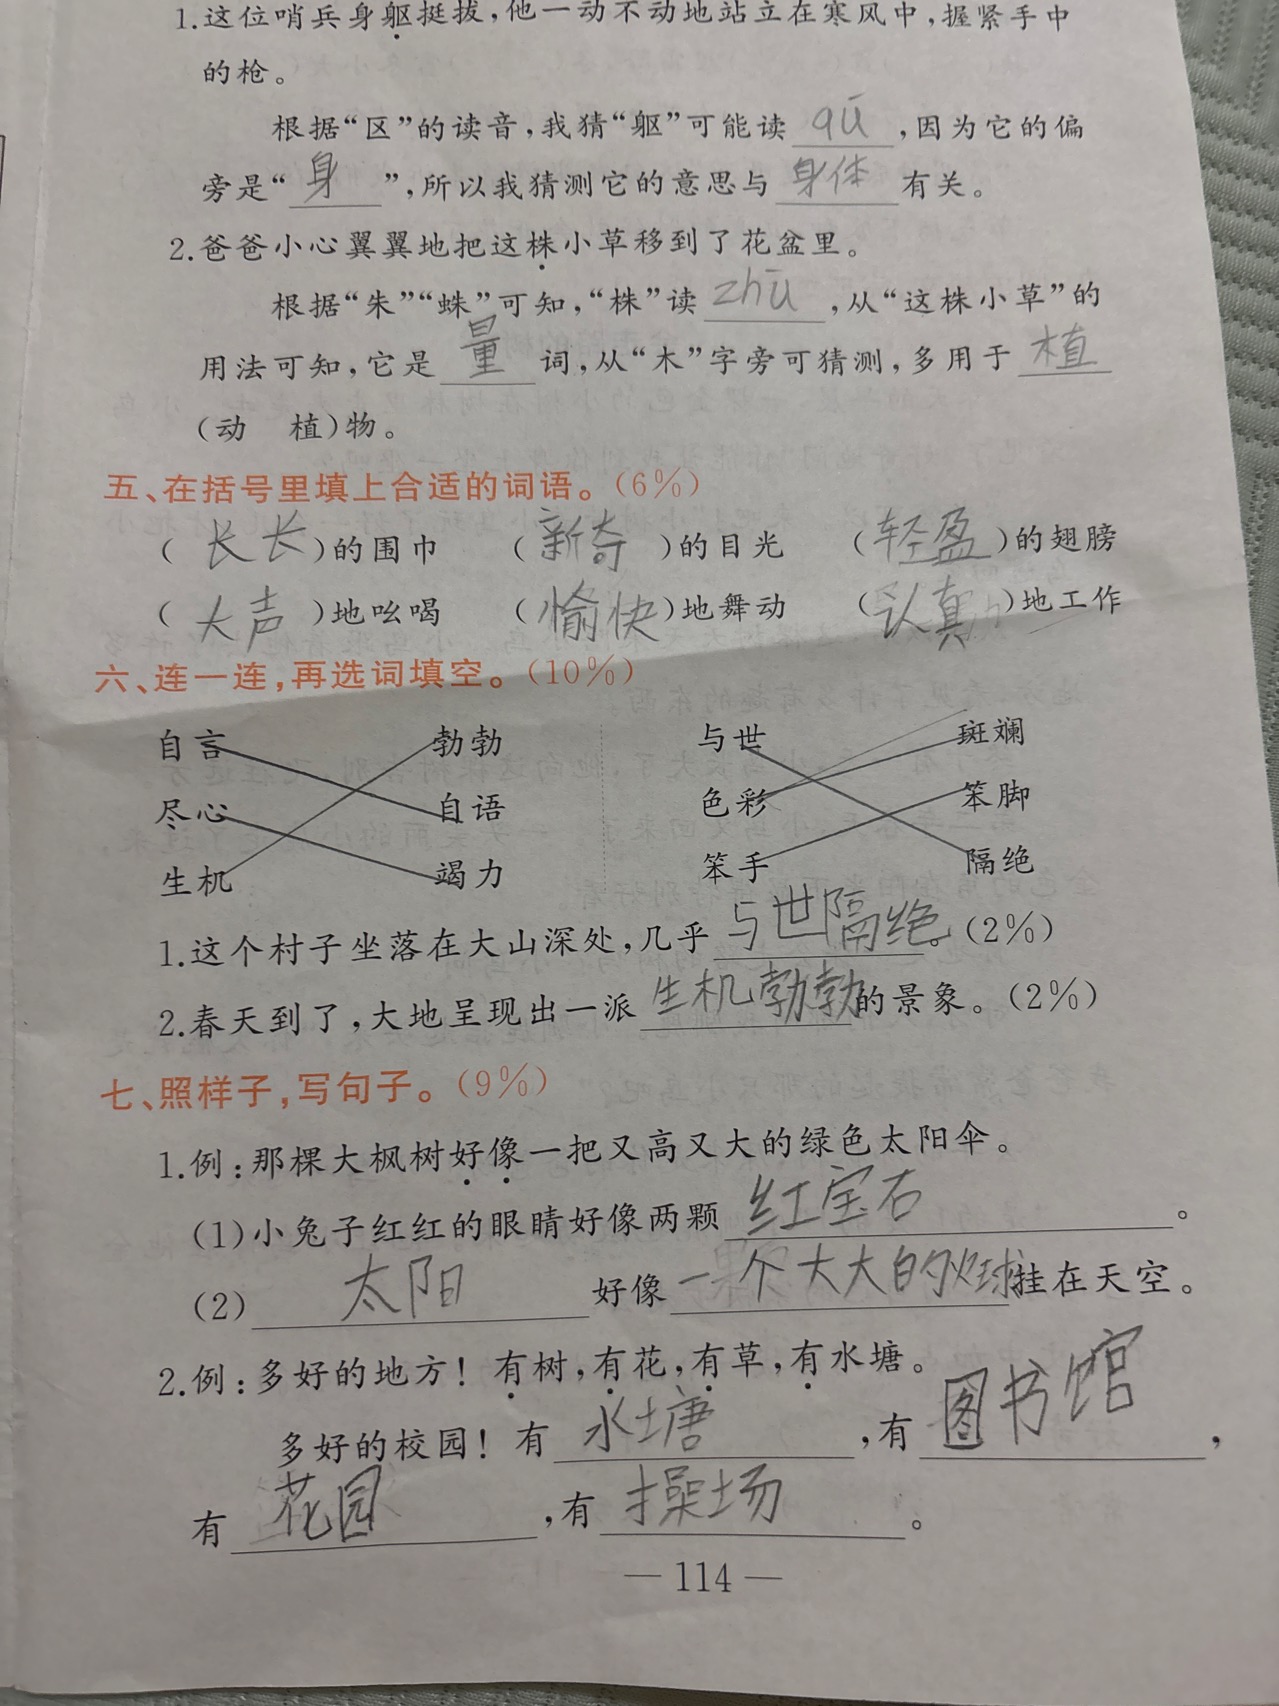 1.这位哨兵身躯挺拔，他一动不动地站立在寒风中，握紧手中
的枪。
根据“区”的读音，我猜“躯”可能读 qū ，因为它的偏
旁是“ 身 ”，所以我猜测它的意思与 身体 有关。
2.爸爸小心翼翼地把这株小草移到了花盆里。
根据“朱”“蛛”可知，“株”读 zhū ，从“这株小草”的
用法可知，它是 量 词，从“木”字旁可猜测，多用于 植
（动 植）物。
五、在括号里填上合适的词语。（6%）
（ 长长 ）的围巾 （ 新奇 ）的目光 （ 轻盈 ）的翅膀
（ 大声 ）地吆喝 （ 愉快 ）地舞动 （ 认真 ）地工作
六、连一连，再选词填空。（10%）
自言 勃勃 与世 斑斓
尽心 自语 色彩 笨脚
生机 竭力 笨手 隔绝
1.这个村子坐落在大山深处，几乎 与世隔绝 。（2%）
2.春天到了，大地呈现出一派 生机勃勃 的景象。（2%）
七、照样子，写句子。（9%）
1.例：那棵大枫树好像一把又高又大的绿色太阳伞。
（1）小兔子红红的眼睛好像两颗 红宝石 。
（2） 太阳 好像 一个大大的火球 挂在天空。
2.例：多好的地方！有树，有花，有草，有水塘。
多好的校园！有 水塘 ，有 图书馆 ，
有 花园 ，有 操场 。
— 114 —